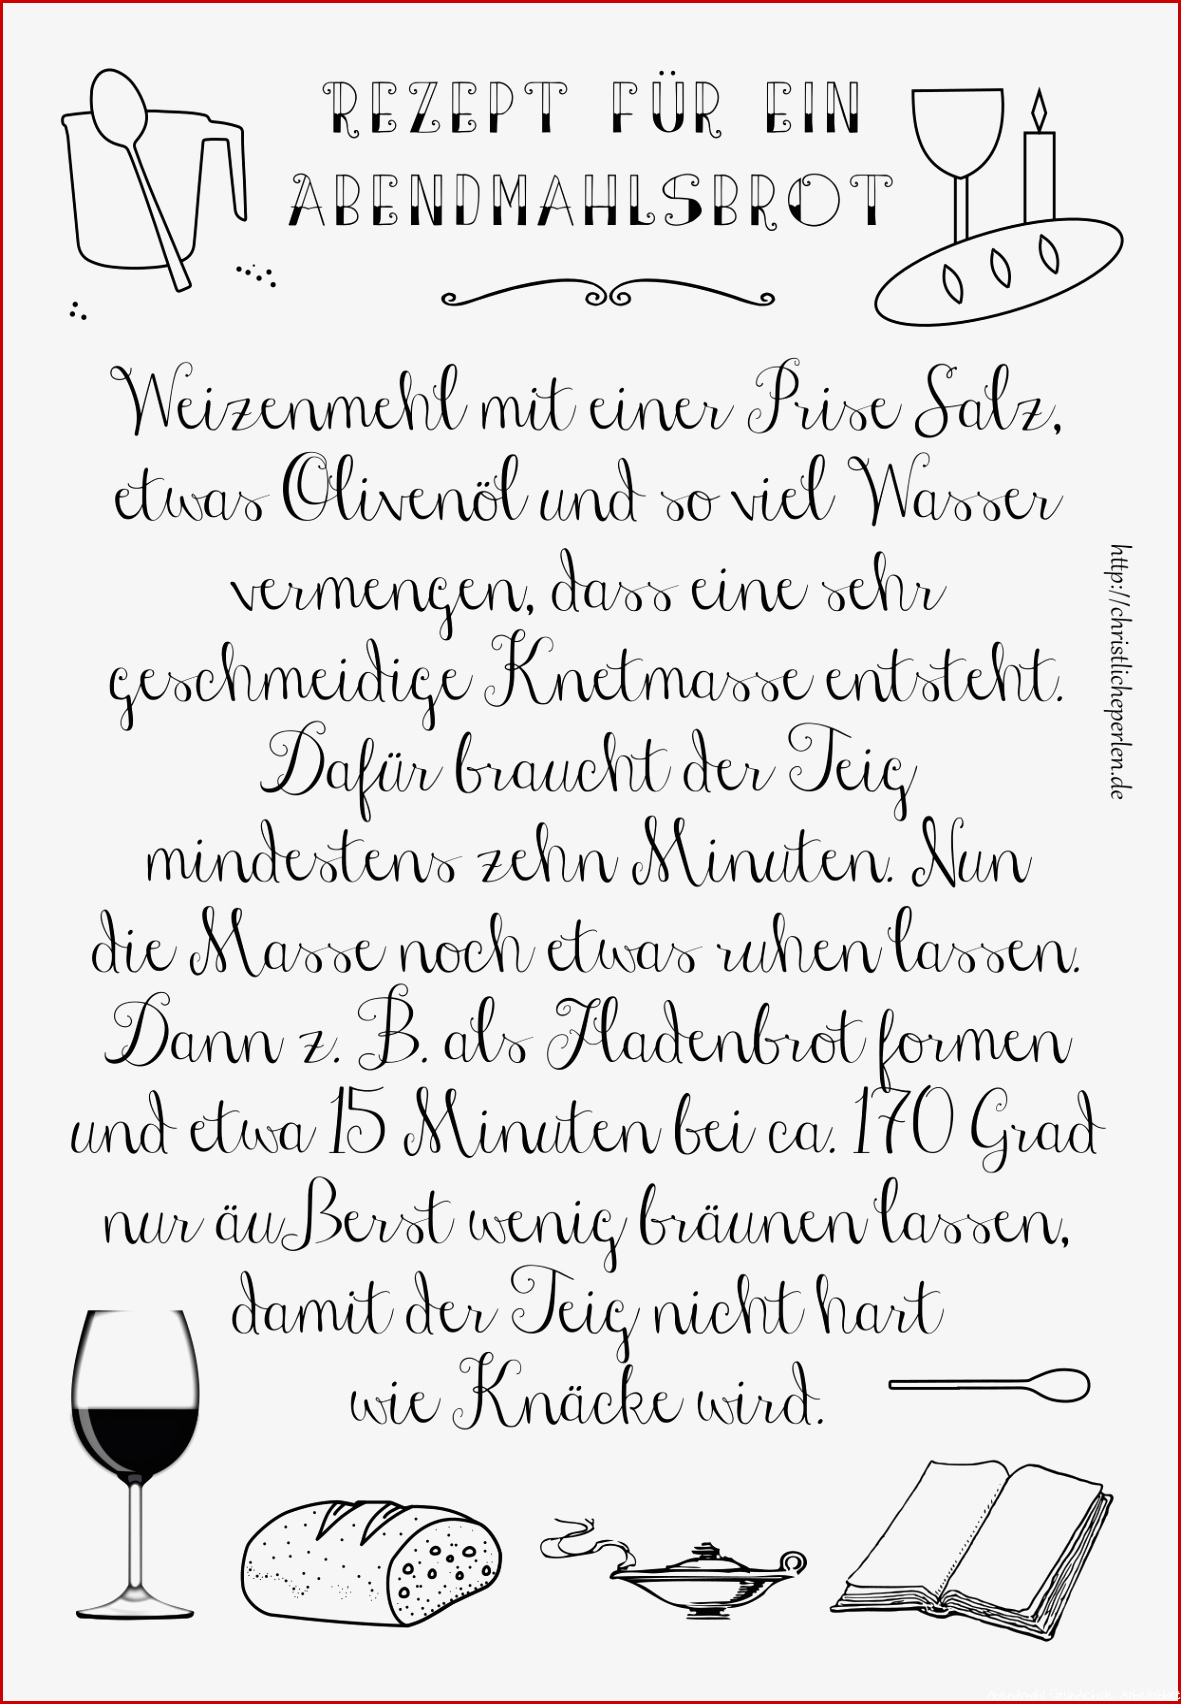 REZEPT FÜR EIN
ABENDMAHLSBROT
Weizenmehl mit einer Prise Salz,
etwas Olivenöl und so viel Wasser
vermengen, dass eine sehr
geschmeidige Knetmasse entsteht.
Dafür braucht der Teig
mindestens zehn Minuten. Nun
die Masse noch etwas ruhen lassen.
Dann z. B. als Fladenbrot formen
und etwa 15 Minuten bei ca. 170 Grad
nur äußerst wenig bräunen lassen,
damit der Teig nicht hart
wie Knäcke wird.
http://christlicheperlen.de